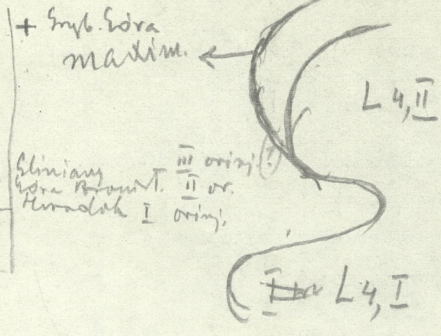 + Gryb. Góra
madim.
L 4,II
Gliniany III orinj. (?)
Góra Broni T. II or.
Hradok I orinj.
L 4, I